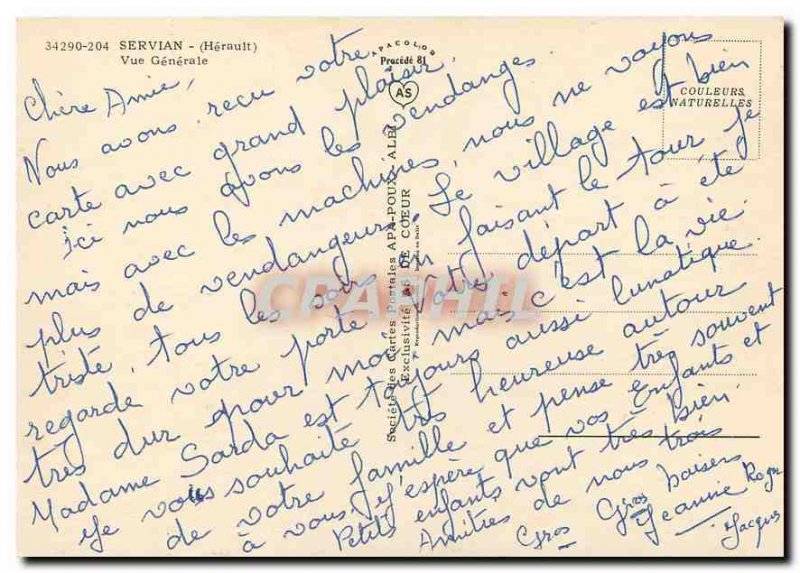 34290-204 SERVIAN - (Hérault)
Vue Générale
APACOLOR
Procédé 81
AS
COULEURS
NATURELLES
Société des Cartes Postales APA-POUX - ALBI
Exclusivité AS DE COEUR
CPAPHIL
Chère Amie,
Nous avons reçu votre
carte avec grand plaisir,
ici nous avons les vendanges
mais avec les machines, nous ne voyons
plus de vendangeurs. Le village est bien
triste, tous les soirs en faisant le tour je
regarde votre porte votre départ à été
très dur pour moi mais c'est la vie.
Madame Sarda est toujours aussi lunatique.
Je vous souhaite très heureuse autour
de votre famille et pense très souvent
à vous j'espère que vos Enfants et
Petits enfants vont très bien.
Amitiés de nous trois
Gros Gros baisers
Jeanne Roger
Jacques